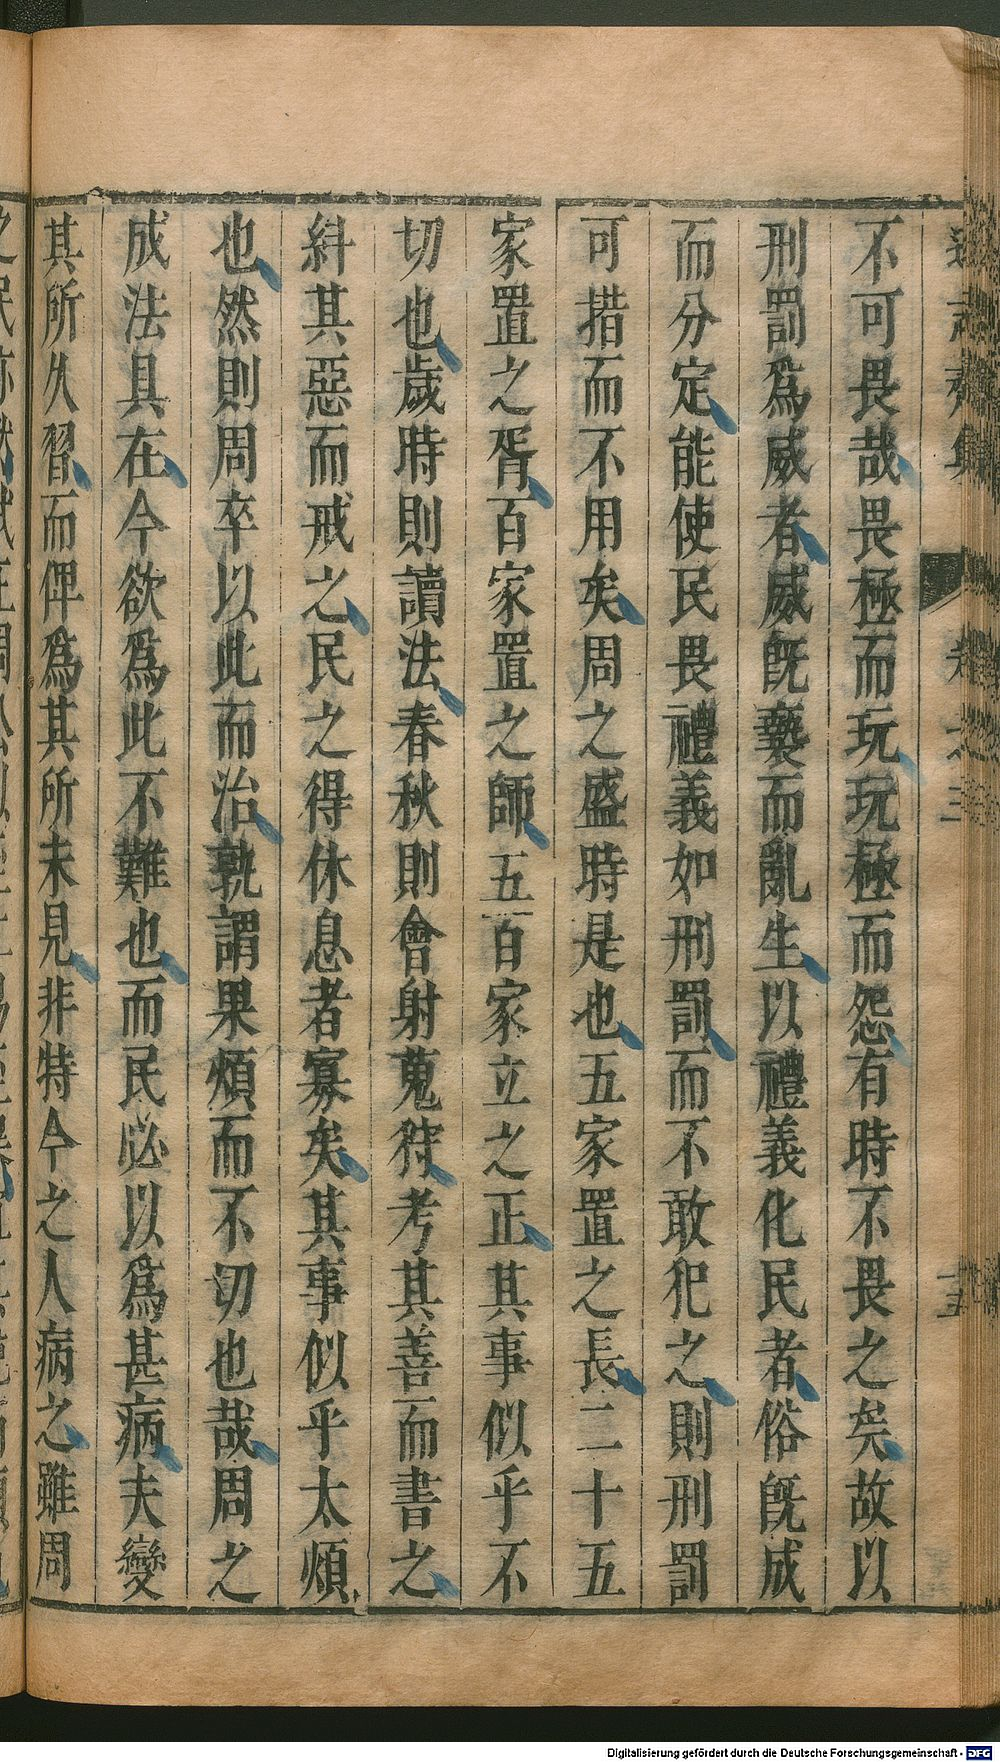 不可畏哉畏極而玩玩極而怨有時不畏之矣故以
刑罰爲威者威旣褻而亂生以禮義化民者俗旣成
而分定能使民畏禮義如刑罰而不敢犯之則刑罰
可措而不用矣周之盛時是也五家置之長二十五
家置之胥百家置之師五百家立之正其事似乎不
切也歲時則讀法春秋則會射蒐狩考其善而書之
糾其惡而戒之民之得休息者寡矣其事似乎太煩
也然則周卒以此而治孰謂果煩而不切也哉周之
成法具在今欲爲此不難也而民必以爲甚病夫變
其所久習而俾爲其所未見非特今之人病之雖周
Digitalisierung gefördert durch die Deutsche Forschungsgemeinschaft - DFG